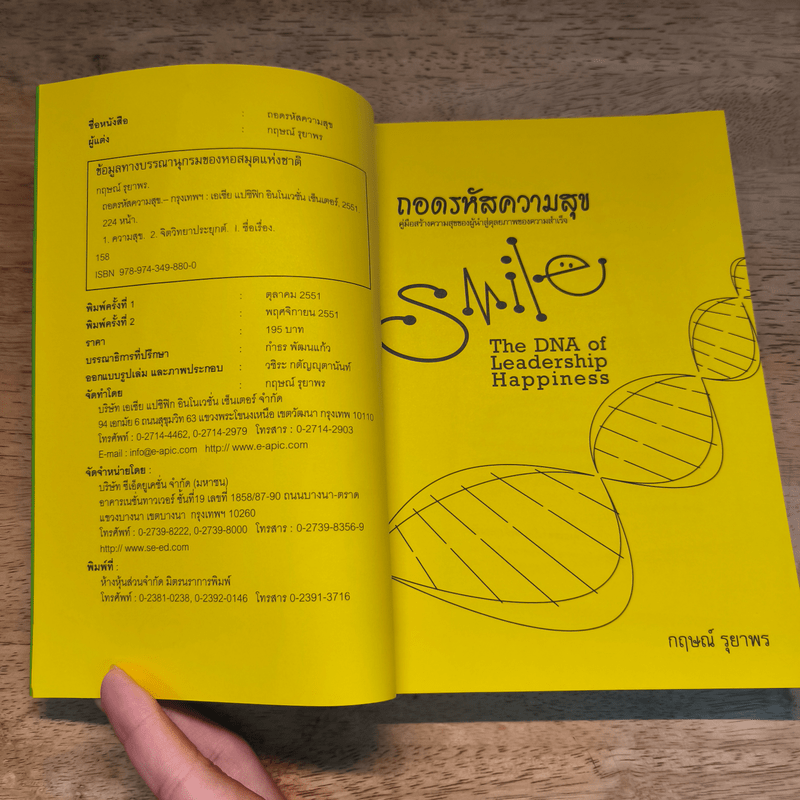 ชื่อหนังสือ : ถอดรหัสความสุข
ผู้แต่ง : กฤษณ์ รุยาพร
ข้อมูลทางบรรณานุกรมของหอสมุดแห่งชาติ
กฤษณ์ รุยาพร.
ถอดรหัสความสุข.-- กรุงเทพฯ : เอเชีย แปซิฟิก อินโนเวชั่น เซ็นเตอร์, 2551
224 หน้า.
1. ความสุข. 2. จิตวิทยาประยุกต์. I. ชื่อเรื่อง.
158
ISBN 978-974-349-880-0
พิมพ์ครั้งที่ 1 : ตุลาคม 2551
พิมพ์ครั้งที่ 2 : พฤศจิกายน 2551
ราคา : 195 บาท
บรรณาธิการที่ปรึกษา : กำธร พัฒนแก้ว
ออกแบบรูปเล่ม และภาพประกอบ : วชิระ กตัญญุตานันท์
จัดทำโดย : กฤษณ์ รุยาพร
บริษัท เอเชีย แปซิฟิก อินโนเวชั่น เซ็นเตอร์ จำกัด
94 เอกมัย 6 ถนนสุขุมวิท 63 แขวงพระโขนงเหนือ เขตวัฒนา กรุงเทพ 10110
โทรศัพท์ : 0-2714-4462, 0-2714-2979 โทรสาร : 0-2714-2903
E-mail : info@e-apic.com http:// www.e-apic.com
จัดจำหน่ายโดย :
บริษัท ซีเอ็ดยูเคชั่น จำกัด (มหาชน)
อาคารเนชั่นทาวเวอร์ ชั้นที่19 เลขที่ 1858/87-90 ถนนบางนา-ตราด
แขวงบางนา เขตบางนา กรุงเทพฯ 10260
โทรศัพท์ : 0-2739-8222, 0-2739-8000 โทรสาร : 0-2739-8356-9
http:// www.se-ed.com
พิมพ์ที่ :
ห้างหุ้นส่วนจำกัด มิตรนราการพิมพ์
โทรศัพท์ : 0-2381-0238, 0-2392-0146 โทรสาร 0-2391-3716
ถอดรหัสความสุข
คู่มือสร้างความสุขของผู้นำสู่ดุลยภาพของความสำเร็จ
Smile
The DNA of
Leadership
Happiness
กฤษณ์ รุยาพร